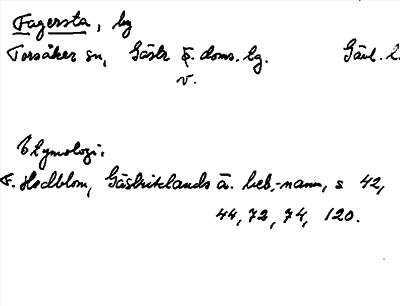 Fagersta, by
Torsåker sn, Gästr. ö. doms. lg. Gävl. l.
v.
Etymologi.
F. Hedblom, Gästriklands ä. beb.-namn, s 42,
44, 72, 74, 120.